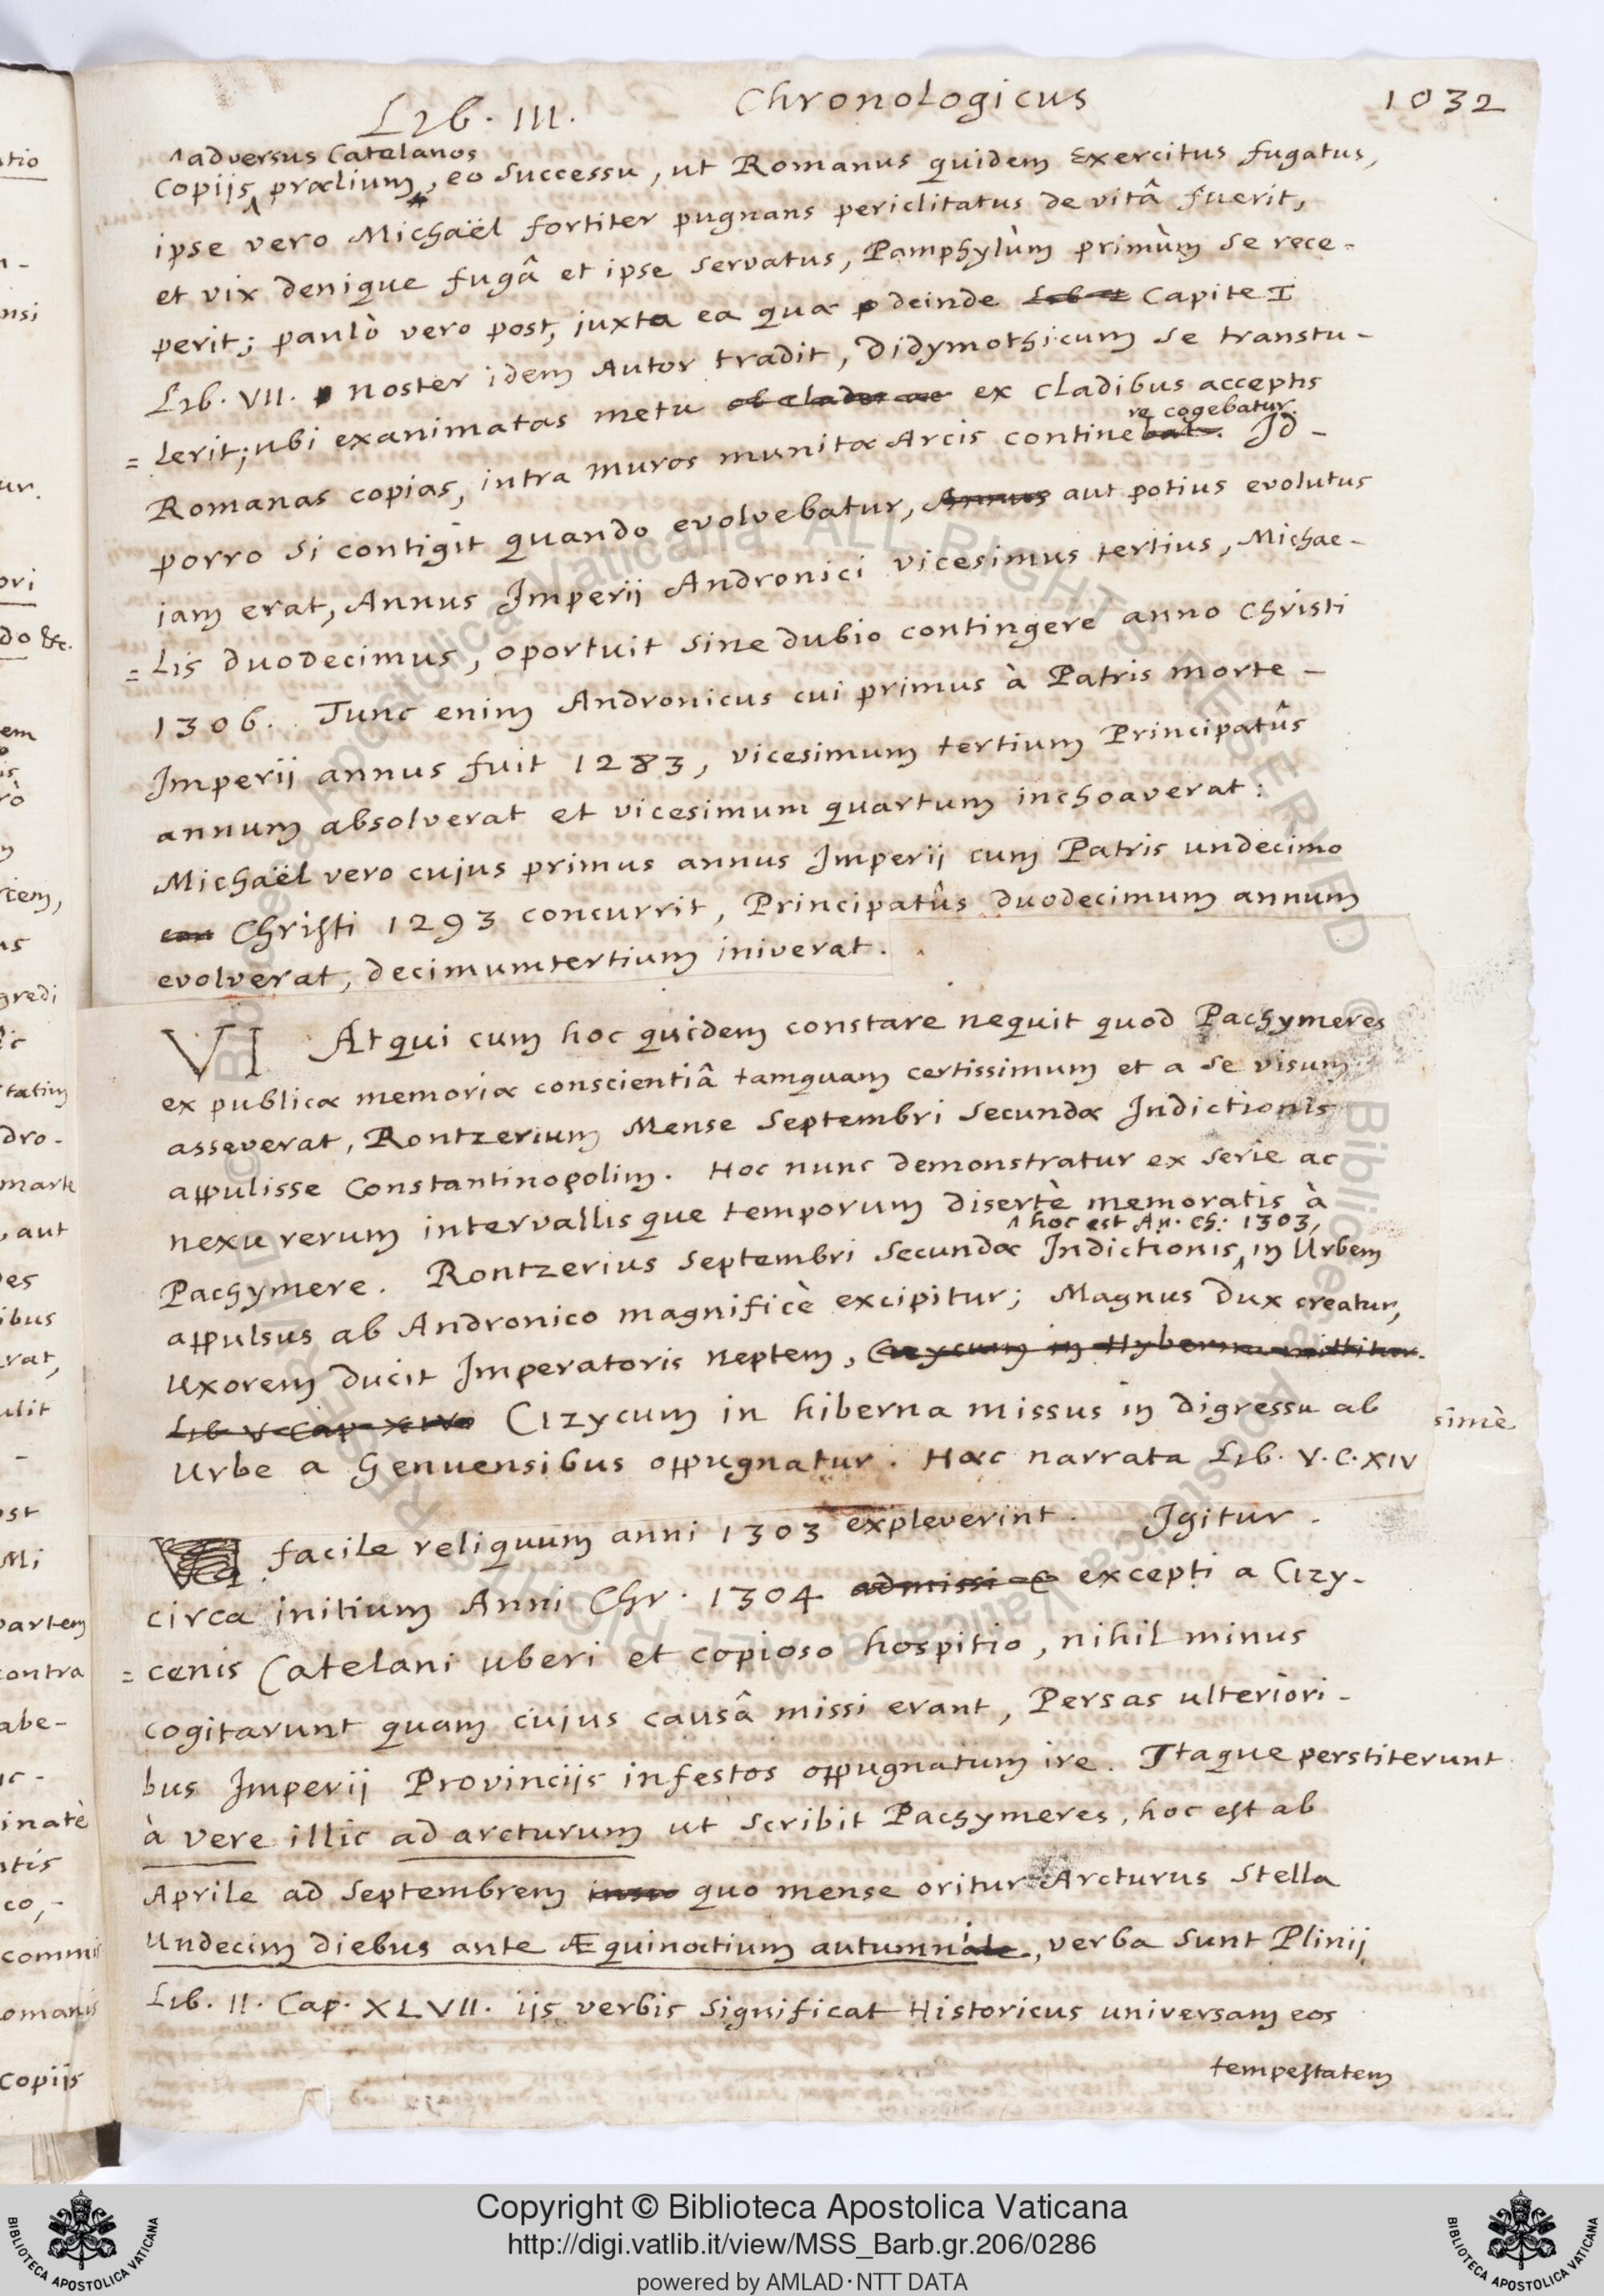 Lib. III. Chronologicus 1032
^adversus Catelanos
Copijs^ prælium, eo successu, ut Romanus quidem Exercitus fugatus,
ipse vero Michaël fortiter pugnans periclitatus de vitâ fuerit,
et vix denique fugâ et ipse servatus, Pamphylùm primùm se rece-
perit; paulò vero post, juxta ea quæ deinde Capite I
Lib. VII. noster idem Autor tradit, Didymothicum se transtu-
=lerit; ubi exanimatas metu ex cladibus acceptis
re cogebatur.
Romanas copias, intra muros munitæ Arcis continebat. Id-
porro si contigit quando evolvebatur, Annus aut potius evolutus
iam erat, Annus Imperii Andronici vicesimus tertius, Michae-
=lis duodecimus, oportuit sine dubio contingere anno Christi
1306. Tunc enim Andronicus cui primus à Patris morte-
Imperii annus fuit 1283, vicesimum tertium Principatûs
annum absolverat et vicesimum quartum inchoaverat:
Michaël vero cujus primus annus Imperij cum Patris undecimo
con Christi 1293 concurrit, Principatûs duodecimum annum
evolverat, decimumtertium iniverat.
VI Atqui cum hoc quidem constare nequit quod Pachymeres
ex publicæ memoriæ conscientiâ tamquam certissimum et a se visum
asseverat, Rontzerium Mense Septembri secundæ Indictionis
appulisse Constantinopolim. Hoc nunc demonstratur ex serie ac
nexu rerum intervallisque temporum disertè memoratis à
^hoc est An. Ch: 1303,
Pachymere. Rontzerius Septembri secundæ Indictionis^ in Urbem
appulsus ab Andronico magnificè excipitur; Magnus Dux creatur,
Uxorem ducit Imperatoris neptem, Cizycum in Hyberna mittitur.
Lib V Cap XIV Cizycum in hiberna missus in digressu ab
Urbe a Genuensibus oppugnatur. Hæc narrata Lib. V. C. XIV
facile reliquum anni 1303 expleverint. Igitur.
circa initium Anni Chr. 1304 admissi excepti a Cizy-
=cenis Catelani uberi et copioso hospitio, nihil minus
cogitarunt quam cujus causâ missi erant, Persas ulteriori-
bus Imperij Provincijs infestos oppugnatum ire. Itaque perstiterunt
à vere illic ad arcturum ut scribit Pachymeres, hoc est ab
Aprile ad Septembrem quo mense oritur Arcturus Stella
undecim diebus ante Æquinoctium autumni, verba sunt Plinij
Lib. II. Cap. XLVII. ijs verbis significat Historicus universam eos
tempestatem
tio
nsi
ur.
ori
do &c.
em
rò
rcem,
us
gredi
tatim
dro-
marte
aut
ibus
rat,
ulit
Mi
partem
contra
abe-
inatè
ntis
co,-
commi
omanis
copijs
simè
© Biblioteca Apostolica Vaticana ALL RIGHTS RESERVED
Copyright © Biblioteca Apostolica Vaticana
http://digi.vatlib.it/view/MSS_Barb.gr.206/0286
powered by AMLAD·NTT DATA
BIBLIOTECA APOSTOLICA VATICANA
BIBLIOTECA APOSTOLICA VATICANA